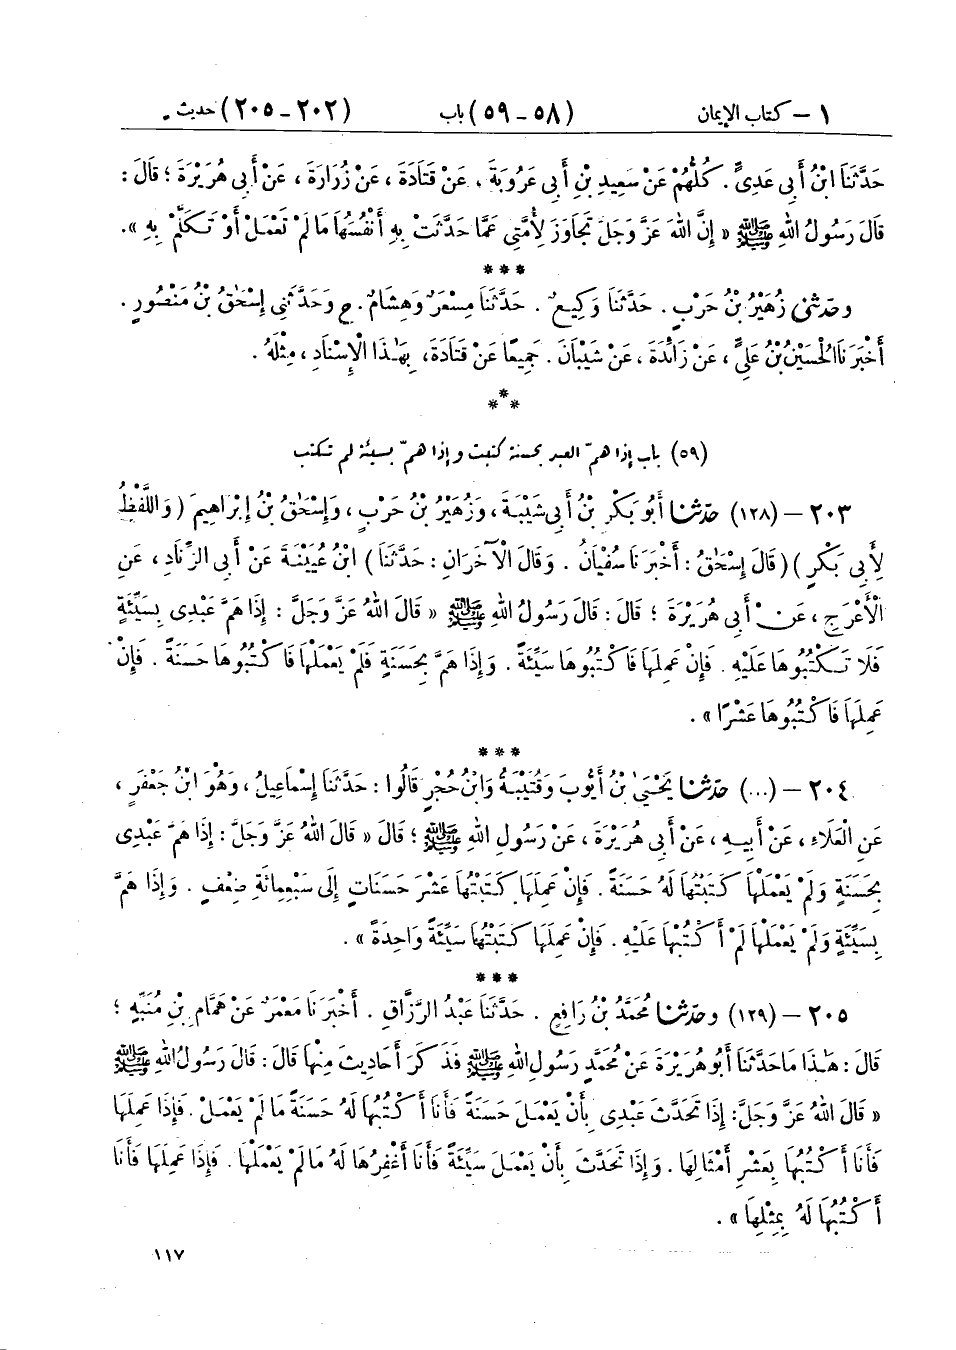 ١ – كتاب الإيمان (٥٨ – ٥٩) باب (٢٠٢ – ٢٠٥) حديث
حَدَّثَنَا ابْنُ أَبِى عَدِىٍّ . كُلُّهُمْ عَنْ سَعِيدِ بْنِ أَبِى عَرُوبَةَ ، عَنْ قَتَادَةَ ، عَنْ زُرَارَةَ ، عَنْ أَبِى هُرَيْرَةَ ؛ قَالَ :
قَالَ رَسُولُ اللهِ ﷺ « إِنَّ اللهَ عَزَّ وَجَلَّ تَجَاوَزَ لِأُمَّتِى عَمَّا حَدَّثَتْ بِهِ أَنْفُسُهَا مَا لَمْ تَعْمَلْ أَوْ تَكَلَّمْ بِهِ » .
***
وحَدّثنى زُهَيْرُ بْنُ حَرْبٍ . حَدَّثَنَا وَكِيعٌ . حَدَّثَنَا مِسْعَرٌ وَهِشَامٌ . ح وَحَدَّثَنِى إِسْحَٰقُ بْنُ مَنْصُورٍ .
أَخْبَرَنَا الْحُسَيْنُ بْنُ عَلِىٍّ ، عَنْ زَائِدَةَ ، عَنْ شَيْبَانَ . جَمِيعًا عَنْ قَتَادَةَ ، بِهَٰذَا الْإِسْنَادِ ، مِثْلَهُ .
***
(٥٩) باب إذا همّ العبد بحسنة كتبت وإذا همّ بسيئة لم تكتب
٢٠٣ – (١٢٨) حَدّثنا أَبُو بَكْرِ بْنُ أَبِى شَيْبَةَ ، وَزُهَيْرُ بْنُ حَرْبٍ ، وَإِسْحَٰقُ بْنُ إِبْرَاهِيمَ ( وَاللَّفْظُ
لِأَبِى بَكْرٍ ) ( قَالَ إِسْحَٰقُ : أَخْبَرَنَا سُفْيَانُ . وَقَالَ الْآخَرَانِ : حَدَّثَنَا ) ابْنُ عُيَيْنَةَ عَنْ أَبِى الزِّنَادِ ، عَنِ
الْأَعْرَجِ ، عَنْ أَبِى هُرَيْرَةَ ؛ قَالَ : قَالَ رَسُولُ اللهِ ﷺ « قَالَ اللهُ عَزَّ وَجَلَّ : إِذَا هَمَّ عَبْدِى بِسَيِّئَةٍ
فَلَا تَكْتُبُوهَا عَلَيْهِ . فَإِنْ عَمِلَهَا فَاكْتُبُوهَا سَيِّئَةً . وَإِذَا هَمَّ بِحَسَنَةٍ فَلَمْ يَعْمَلْهَا فَاكْتُبُوهَا حَسَنَةً . فَإِنْ
عَمِلَهَا فَاكْتُبُوهَا عَشْرًا » .
***
٢٠٤ – (...) حَدّثنا يَحْيَىٰ بْنُ أَيُّوبَ وَقُتَيْبَةُ وَابْنُ حُجْرٍ قَالُوا : حَدَّثَنَا إِسْمَاعِيلُ ، وَهُوَ ابْنُ جَعْفَرٍ ،
عَنِ الْعَلَاءِ ، عَنْ أَبِيهِ ، عَنْ أَبِى هُرَيْرَةَ ، عَنْ رَسُولِ اللهِ ﷺ ؛ قَالَ « قَالَ اللهُ عَزَّ وَجَلَّ : إِذَا هَمَّ عَبْدِى
بِحَسَنَةٍ وَلَمْ يَعْمَلْهَا كَتَبْتُهَا لَهُ حَسَنَةً . فَإِنْ عَمِلَهَا كَتَبْتُهَا عَشْرَ حَسَنَاتٍ إِلَى سَبْعِمِائَةِ ضِعْفٍ . وَإِذَا هَمَّ
بِسَيِّئَةٍ وَلَمْ يَعْمَلْهَا لَمْ أَكْتُبْهَا عَلَيْهِ . فَإِنْ عَمِلَهَا كَتَبْتُهَا سَيِّئَةً وَاحِدَةً » .
***
٢٠٥ – (١٢٩) وحَدّثنا مُحَمَّدُ بْنُ رَافِعٍ . حَدَّثَنَا عَبْدُ الرَّزَّاقِ . أَخْبَرَنَا مَعْمَرٌ عَنْ هَمَّامِ بْنِ مُنَبِّهٍ ؛
قَالَ : هَٰذَا مَا حَدَّثَنَا أَبُو هُرَيْرَةَ عَنْ مُحَمَّدٍ رَسُولِ اللهِ ﷺ فَذَكَرَ أَحَادِيثَ مِنْهَا قَالَ : قَالَ رَسُولُ اللهِ ﷺ
« قَالَ اللهُ عَزَّ وَجَلَّ : إِذَا تَحَدَّثَ عَبْدِى بِأَنْ يَعْمَلَ حَسَنَةً فَأَنَا أَكْتُبُهَا لَهُ حَسَنَةً مَا لَمْ يَعْمَلْ . فَإِذَا عَمِلَهَا
فَأَنَا أَكْتُبُهَا بِعَشْرِ أَمْثَالِهَا . وَإِذَا تَحَدَّثَ بِأَنْ يَعْمَلَ سَيِّئَةً فَأَنَا أَغْفِرُهَا لَهُ مَا لَمْ يَعْمَلْهَا . فَإِذَا عَمِلَهَا فَأَنَا
أَكْتُبُهَا لَهُ بِمِثْلِهَا » .
١١٧